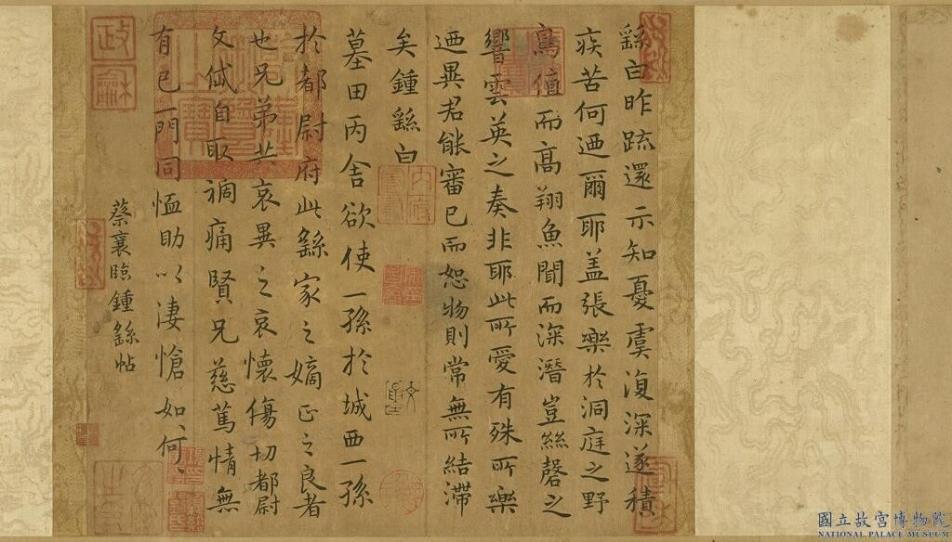 繇白昨疏還示知憂虞復深遂積
疾苦何迺爾耶盖張樂於洞庭之野
鳥值而高翔魚聞而深潛豈絲磬之
響雲英之奏非耶此所愛有殊所樂
迺異君能審己而恕物則常無所結滯
矣鍾繇白
墓田丙舍欲使一孫於城西一孫
於都尉府此繇家之嫡正之良者
也兄弟共哀異之哀懷傷切都尉
文岱自取禍痛賢兄慈篤情無
有已一門同恤助以淒愴如何
蔡襄臨鍾繇帖
政龢
國立故宮博物院
NATIONAL PALACE MUSEUM